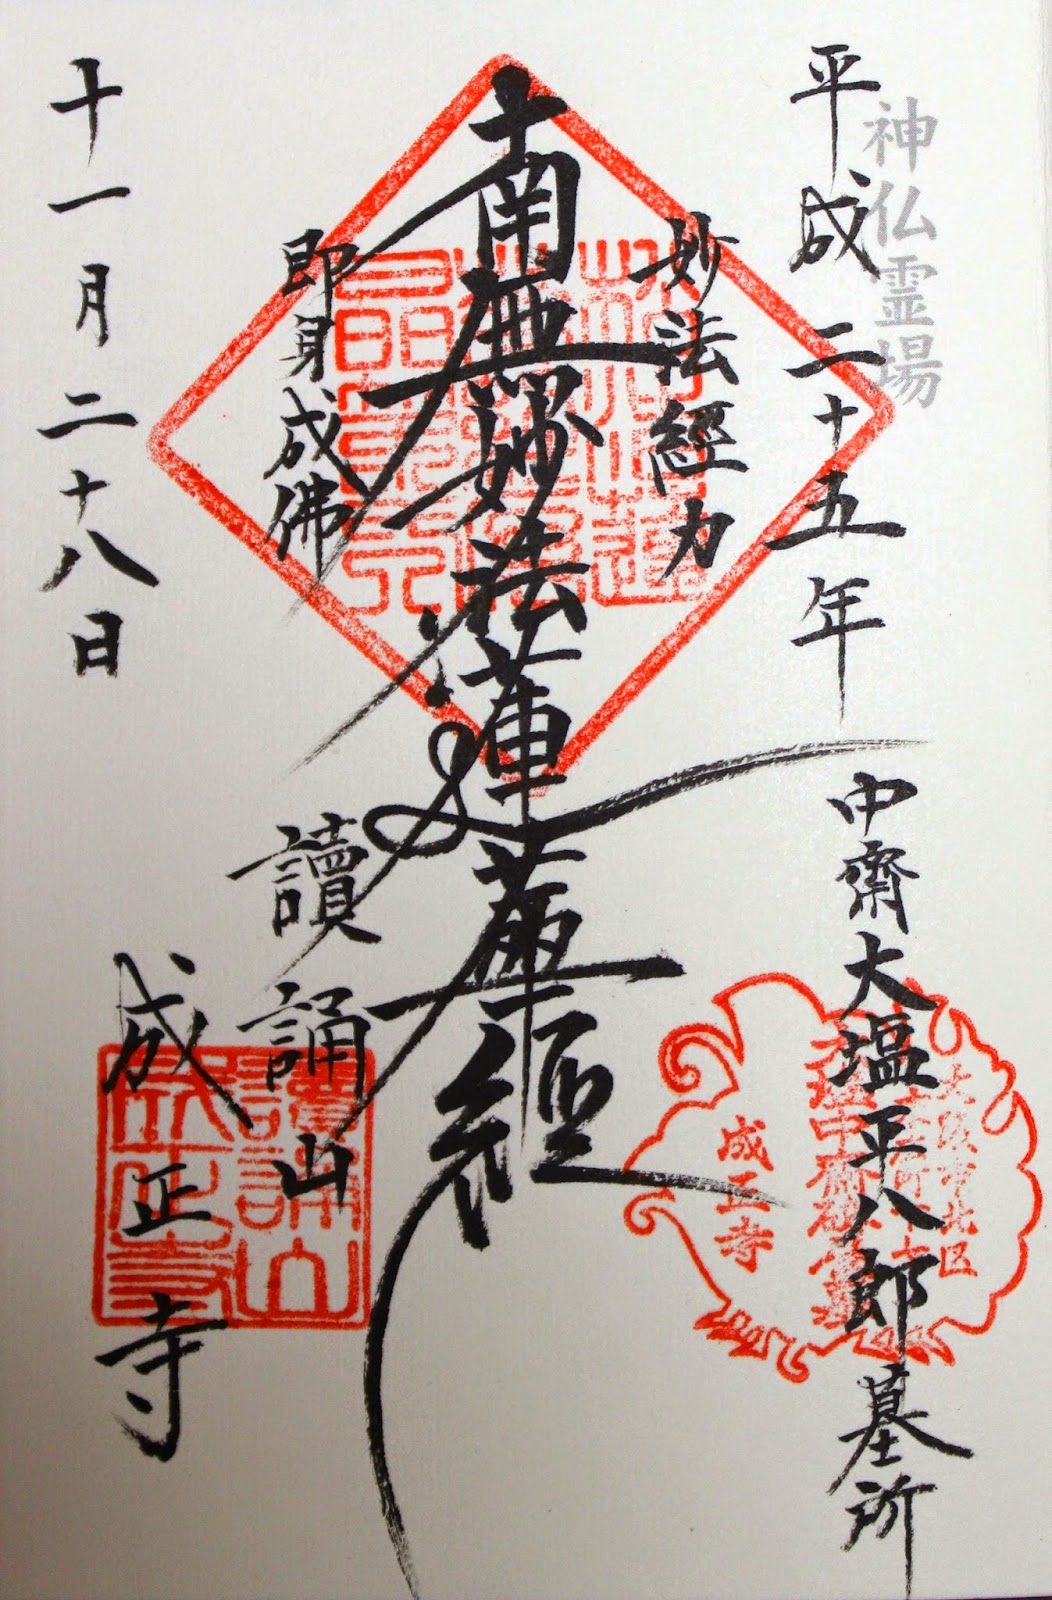 神仏霊場
平成二十五年
中齋大塩平八郎墓所
妙法經力
南無妙法蓮華經
即身成佛
讀誦山
成正寺
十一月二十八日
成正寺
讀誦山
成正寺